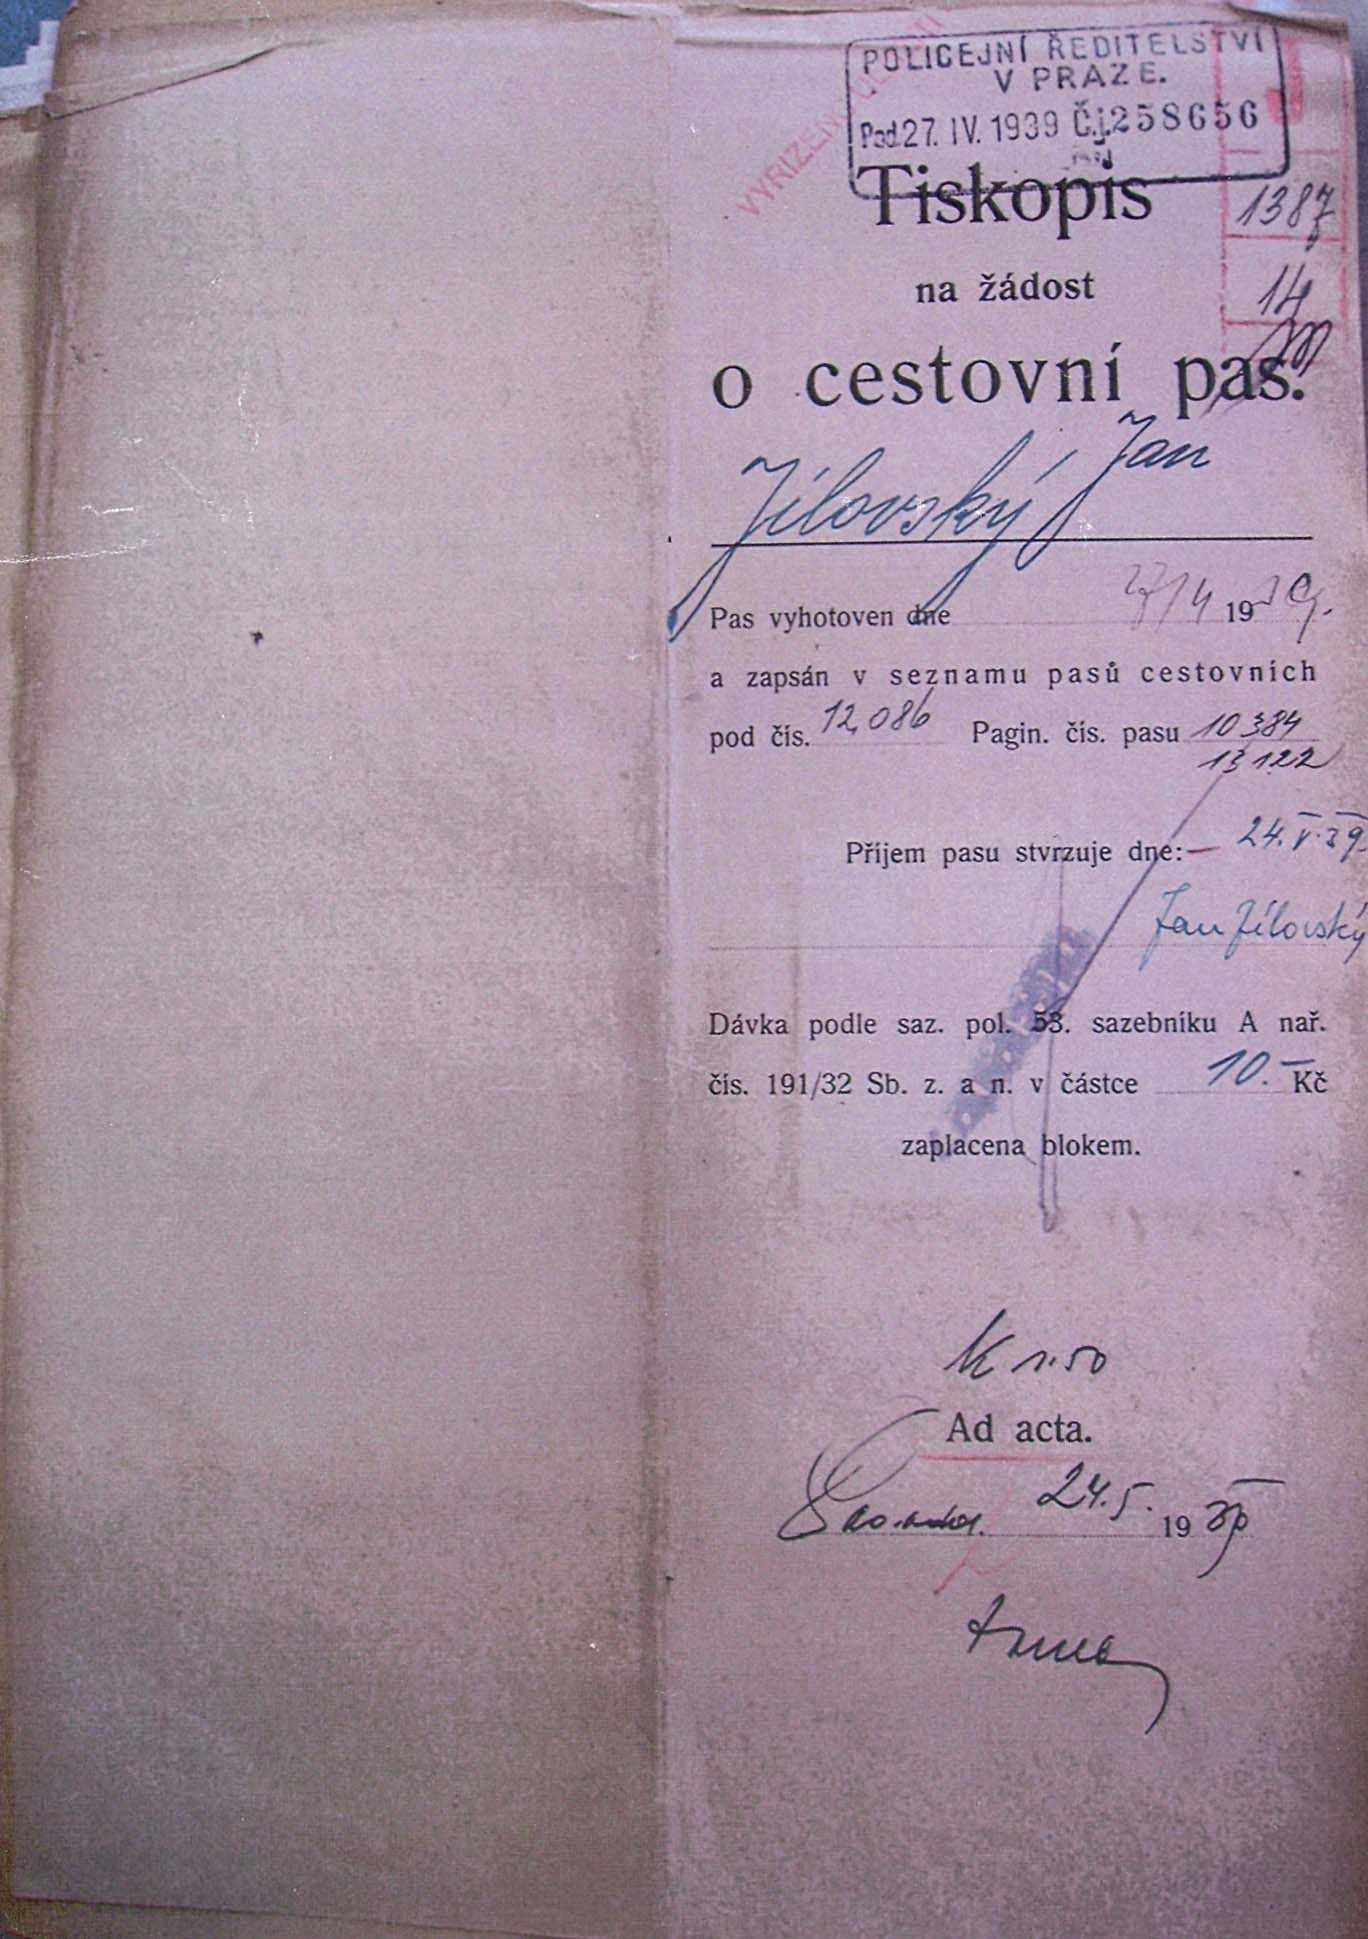 POLICEJNÍ ŘEDITELSTVÍ
V PRAZE.
Pod. 27. IV. 1939 Č.j. 258656
1387
14
Tiskopis
na žádost
o cestovní pas.
Jílovský Jan
Pas vyhotoven dne 27/4 1939.
a zapsán v seznamu pasů cestovních
pod čís. 12,086 Pagin. čís. pasu 10384
13122
Příjem pasu stvrzuje dne: 24.V.39.
Jan Jílovský
Dávka podle saz. pol. 53. sazebníku A nař.
čís. 191/32 Sb. z. a n. v částce 10.- Kč
zaplacena blokem.
Ad acta.
24.5. 1939